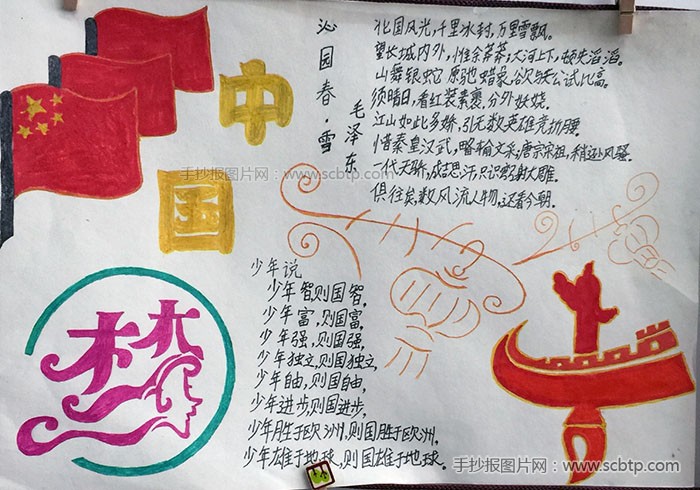 中
国
梦
沁园春·雪
毛泽东
北国风光,千里冰封,万里雪飘。
望长城内外,惟余莽莽;大河上下,顿失滔滔。
山舞银蛇 原驰蜡象、欲与天公试比高。
须晴日,看红装素裹,分外妖娆。
江山如此多娇,引无数英雄竞折腰。
惜秦皇汉武,略输文采;唐宗宋祖,稍逊风骚。
一代天骄,成吉思汗,只识弯弓射大雕。
俱往矣,数风流人物,还看今朝。
少年说
少年智则国智,
少年富,则国富,
少年强,则国强,
少年独立,则国独立,
少年自由,则国自由,
少年进步,则国进步,
少年胜于欧洲,则国胜于欧洲,
少年雄于地球,则国雄于地球。
手抄报图片网:www.scbtp.com
手抄报图片网:www.scbtp.com